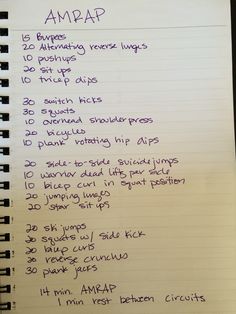 AMRAP
15 Burpees
20 Alternating reverse lunges
10 pushups
20 sit ups
10 tricep dips
30 switch kicks
30 squats
10 overhead shoulder press
20 bicycles
10 plank rotating hip dips
20 side-to-side suicide jumps
10 warrior dead lifts per side
10 bicep curl in squat position
20 jumping lunges
20 star sit ups
20 ski jumps
20 squats w/ side kick
20 bicep curls
20 reverse crunches
30 plank jacks
14 min. AMRAP
1 min rest between circuits